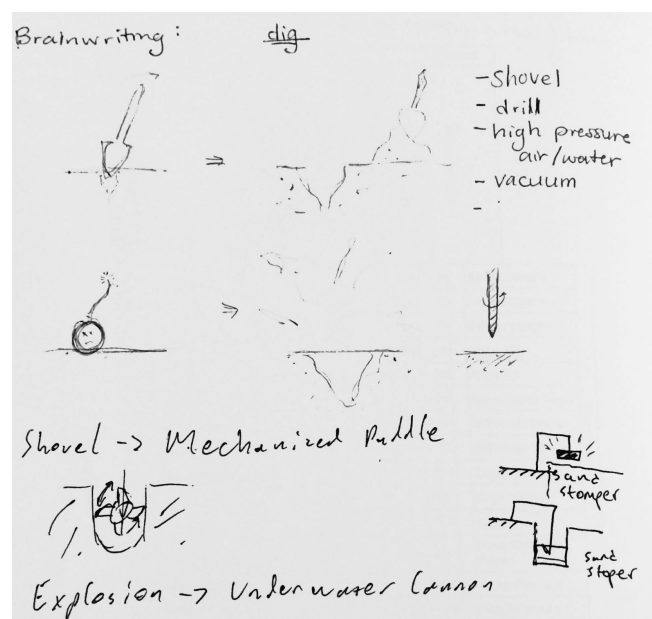 Brainwriting: dig
- Shovel
- drill
- high pressure
air/water
- vacuum
-
Shovel -> Mechanized Puddle
sand
stomper
sand
stoper
Explosion -> Underwater Cannon